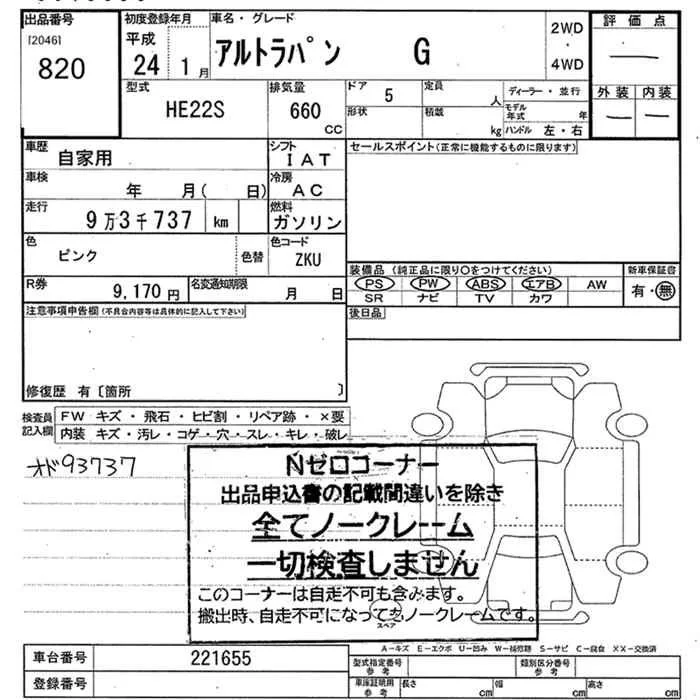 出品番号 初度登録年月 車名・グレード 2WD 評価点
[2046] 平成 ・
820 24 1月 アルトラパン G 4WD ―
型式 排気量 ドア 5 定員 人 ディーラー・並行 外装 内装
HE22S 660 cc 形状 積載 kg モデル年式 年 ― ―
ハンドル 左・右
車歴 自家用 シフト IAT セールスポイント(正常に機能するものに限ります)
車検 年 月( 日) 冷房 AC
走行 9万3千737 km 燃料 ガソリン
色 ピンク 色替 色コード ZKU
装備品 (純正品に限り○をつけてください) 新車保証書
PS PW ABS エアB AW 有・無
SR ナビ TV カワ
R券 9,170円 名変通知期限 月 日
後日品
注意事項申告欄(不具合内容等は具体的に記入して下さい)
修復歴 有〔箇所 〕
検査員記入欄 FW キズ・飛石・ヒビ割・リペア跡・×要
内装 キズ・汚レ・コゲ・穴・スレ・キレ・破レ
オド93737
Nゼロコーナー
出品申込書の記載間違いを除き
全てノークレーム
一切検査しません
このコーナーは自走不可も含みます。
搬出時、自走不可になってもノークレームです。
スペア
A-キズ E-エクボ U-凹み W-補修跡 S-サビ C-腐食 XX-交換済
車台番号 221655 型式指定番号 参考 類別区分番号 参考
登録番号 車庫証明用 参考 長さ cm 幅 cm 高さ cm